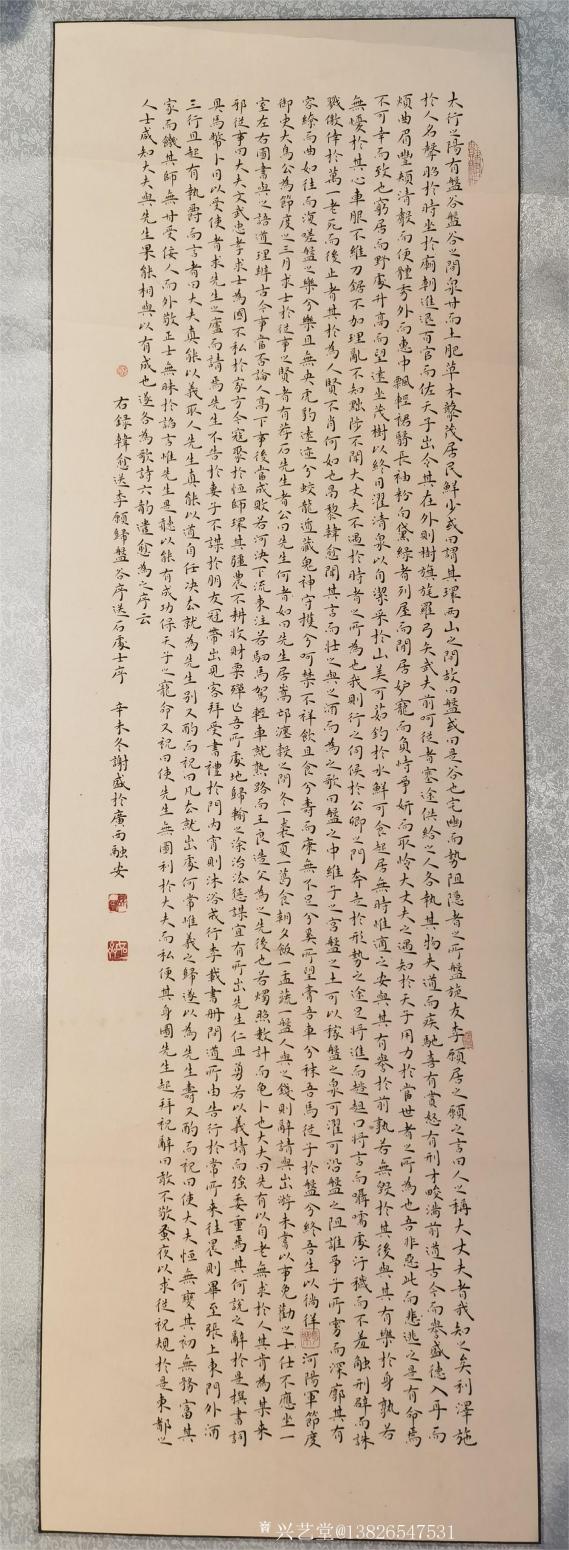 太行之陽有盤谷盤谷之間泉甘而土肥草木藂茂居民鮮少或曰謂其環兩山之間故曰盤或曰是谷也宅幽而勢阻隱者之所盤旋友李願居之願之言曰人之稱大丈夫者我知之矣利澤施
於人名聲昭於時坐於廟朝進退百官而佐天子出令其在外則樹旗旄羅弓矢武夫前呵從者塞途供給之人各執其物夾道而疾馳喜有賞怒有刑才畯滿前道古今而譽盛德入耳而不
煩曲眉豐頰清聲而便體秀外而惠中飄輕裾翳長袖粉白黛綠者列屋而閒居妒寵而負恃爭妍而取憐大丈夫之遇知於天子用力於當世者之所為也吾非惡此而逃之是有命焉
不可幸而致也窮居而野處升高而望遠坐茂樹以終日濯清泉以自潔采於山美可茹釣於水鮮可食起居無時惟適之安與其有譽於前孰若無毀於其後與其有樂於身孰若
無憂於其心車服不維刀鋸不加理亂不知黜陟不聞大丈夫不遇於時者之所為也我則行之伺候於公卿之門奔走於形勢之途足將進而趑趄口將言而囁嚅處汙穢而不羞觸刑辟而誅
戮僥倖於萬一老死而後止者其於為人賢不肖何如也昌黎韓愈聞其言而壯之與之酒而為之歌曰盤之中維子之宮盤之土可以稼盤之泉可濯可沿盤之阻誰爭子所窈而深廓其有
容繚而曲如往而復嗟盤之樂兮樂且無央虎豹遠迹兮蛟龍遁藏鬼神守護兮呵禁不祥飲且食兮壽而康無不足兮奚所望膏吾車兮秣吾馬從子於盤兮終吾生以徜徉河陽軍節度
御史大烏公為節度之三月求士於從事之賢者有薦石先生者公曰先生何者如曰先生居嵩邙瀍榖之間冬一裘夏一葛食朝夕飯一盂蔬一盤人與之錢則辭請與出游未嘗以事免勸之士仕不應坐一
室左右圖書與之語道理辨古今事當否論人高下事後當成敗若河決下流東注若駟馬駕輕車就熟路而王良造父為之先後也若燭照數計而龜卜也大夫曰先有以自老無求於人其肯為某來
邪從事曰大夫文武忠孝求士為國不私於家方今寇聚於恒師環其疆農不耕收財粟殫亡吾所處地歸輸之涂治法征謀宜有所出先生仁且勇若以義請而強委重焉其何說之辭於是撰書詞
具馬幣卜日以受使者求先生之廬而請焉先生不告於妻子不謀於朋友冠帶出見客拜受書禮於門內宵則沐浴戒行李載書冊問道所由告行於常所來往晨則畢至張上東門外酒
三行且起有執爵而言者曰大夫真能以義取人先生真能以道自任決去就為先生別又酌而祝曰凡去就出處何常惟義之歸遂以為先生壽又酌而祝曰使大夫恒無變其初無務富其
家而饑其師無甘受佞人而外敬正士無昧於諂言惟先生是聽以能有成功保天子之寵命又祝曰使先生無圖利於大夫而私便其身圖先生起拜祝辭曰敢不敬蚤夜以求從祝規於是東都之
人士咸知大夫與先生果能相與以有成也遂各為歌詩六韵遣愈為之序云
右錄韓愈送李願歸盤谷序送石處士序 辛未冬謝盛於廣西融安
兴艺堂@13826547531